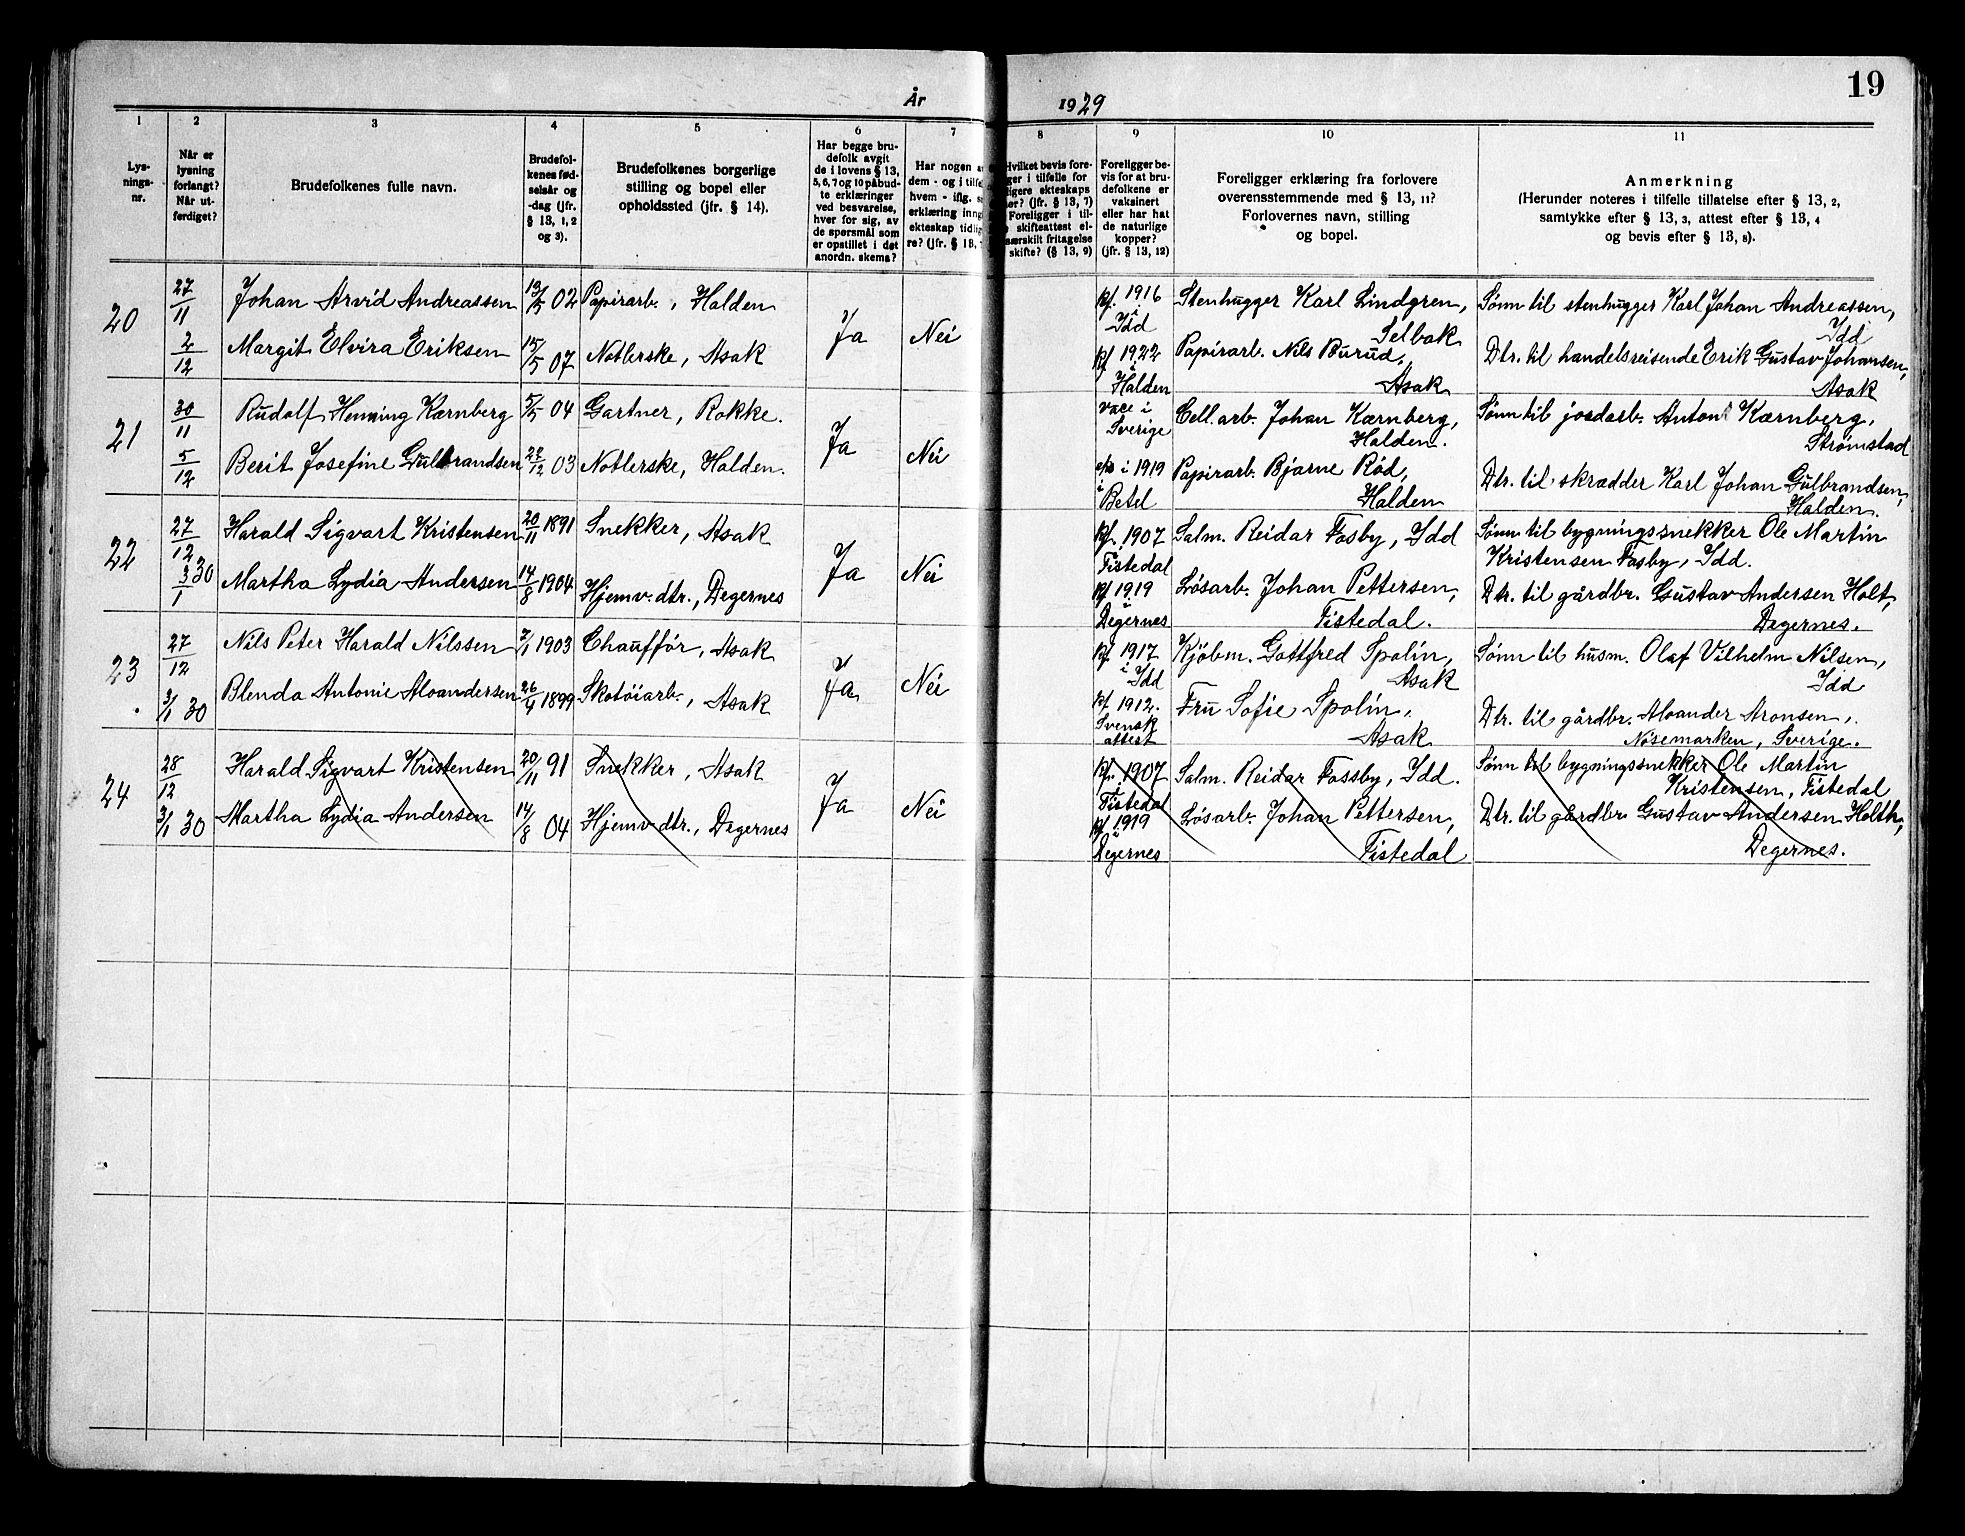 19
År 1929
1
2
3
4
5
6
7
8
9
10
11
Lys-
nings-
nr.
Når er
lysning
forlangt?
Når ut-
ferdiget?
Brudefolkenes fulle navn.
Brudefol-
kenes fød-
selsår og
-dag (jfr.
§ 13, 1, 2
og 3).
Brudefolkenes borgerlige
stilling og bopel eller
opholdssted (jfr. § 14).
Har begge bru-
defolk avgit
de i lovens § 13,
5, 6, 7 og 10 påbud-
te erklæringer
ved besvarelse,
hver for sig, av
de spørsmål som
er opstillet i det
anordn. skema?
Har nogen
dem - og i tilf
hvem - iflg.
erklæring inng
ekteskap tidlig
re? (jfr. § 13,
Hvilket bevis fore-
ger i tilfelle for
ligere ekteskaps
ør? (jfr. § 13, 7)
Foreligger i til-
skifteattest el-
særskilt fritagelse
skifte? (§ 13, 9)
Foreligger be-
vis for at bru-
defolkene er
vaksinert
eller har hat
de naturlige
kopper?
(jfr. § 13, 12)
Foreligger erklæring fra forlovere
overensstemmende med § 13, 11?
Forlovernes navn, stilling
og bopel.
Anmerkning
(Herunder noteres i tilfelle tillatelse efter § 13, 2,
samtykke efter § 13, 3, attest efter § 13, 4
og bevis efter § 13, 8).
20
27/11
2/12
Johan Arvid Andreassen
Margit Elvira Eriksen
13/5 02
15/5 07
Papirarb., Halden
Notlerske, Asak
Ja
Nei
kf. 1916
i
Idd
kf 1922
i
Halden
Stenhugger Karl Lindgren,
Selbak
Papirarb. Nils Burud,
Asak
Sønn til stenhugger Karl Johan Andreassen,
Idd
Dtr. til handelsreisende Erik Gustav Johansen,
Asak
21
30/11
5/12
Rudolf Henning Kærnberg
Berit Josefine Gulbrandsen
5/5 04
22/12 03
Gartner, Rokke.
Notlerske, Halden.
Ja
Nei
vacc i
Sverige
i 1919
i
Betel
Cell.arb. Johan Kærnberg,
Halden.
Papirarb. Bjarne Rød,
Halden
Sønn til jordarb. Anton Kærnberg,
Strømstad
Dtr. til skrædder Karl Johan Gulbrandsen,
Halden.
22
27/12
3/1 30
Harald Sigvart Kristensen
Martha Lydia Andersen
20/11 1891
14/8 1904
Snekker, Asak
Hjemv. dtr., Degernes
Ja
Nei
kf. 1907
i
Tistedal
kf 1919
i
Degernes
Salm. Reidar Fosby, Idd
Løsarb. Johan Pettersen,
Tistedal.
Sønn til bygningssnekker Ole Martin
Kristensen Fosby, Idd.
Dtr. til gårdbr. Gustav Andersen Holt,
Degernes.
23
27/12
3/1 30
Nils Peter Harald Nilssen
Blenda Antonie Aloandersen
7/1 1903
26/4 1899
Chauffør, Asak
Skotøiarb., Asak
Ja
Nei
kf. 1917
i Idd
kf 1912.
Svensk
attest
Kjöbm. Gottfred Spolin,
Asak
Fru Sofie Spolin,
Asak
Sønn til husm. Olaf Vilhelm Nilsen,
Idd
Dtr. til gårdbr. Aloander Aronsen,
Nösemarken, Sverige.
24
28/12
3/1 30
Harald Sigvart Kristensen
Martha Lydia Andersen
20/11 91
14/8 04
Snekker, Asak
Hjemv dtr., Degernes
Ja
Nei
kf. 1907
i
Tistedal
kf 1919
i
Degernes
Salm. Reidar Fossby, Idd.
Løsarb. Johan Pettersen,
Tistedal
Sønn til bygningssnekker Ole Martin
Kristensen, Tistedal
Dtr. til gårdbr Gustav Andersen Holth,
Degernes.